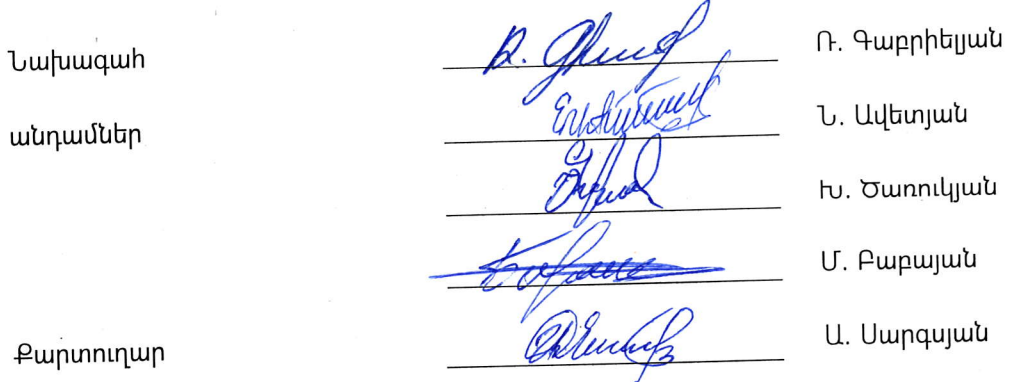 Նախագահ Ռ. Գաբրիելյան
անդամներ Ն. Ավետյան
Խ. Ծառուկյան
Մ. Բաբայան
Քարտուղար Ա. Սարգսյան